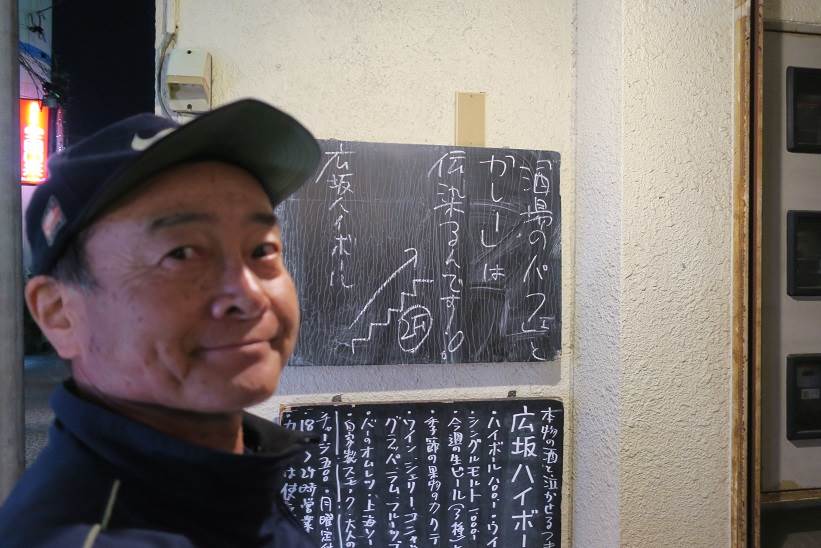 「酒場のパフェと
カレー」は
伝染るんです!。
広坂ハイボール
本物の酒と泣かせるつま
広坂ハイボー
・ハイボール1000・ウイ
・シングルモルト1000
・今週の生ビール(3種)と
・季節の果物のカクテ
・ワイン・シェリー・コニャッ
グラッパ・ラム・フルーツブ
・バーのオムレツ・上海ソー
・自家製スモーク・大人の
チャージ500・月曜定休
・18:00〜24時営業